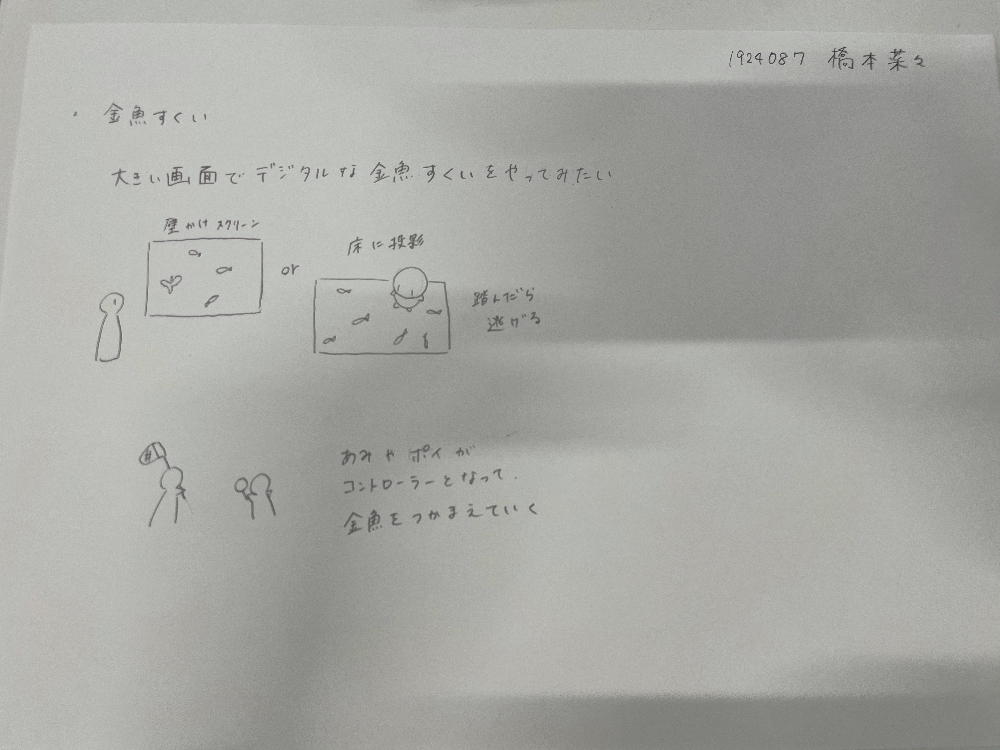 1924087 橋本菜々
・金魚すくい
大きい画面でデジタルな金魚すくいをやってみたい
壁かけスクリーン
or
床に投影
踏んだら
逃げる
あみやポイが
コントローラーとなって、
金魚をつかまえていく